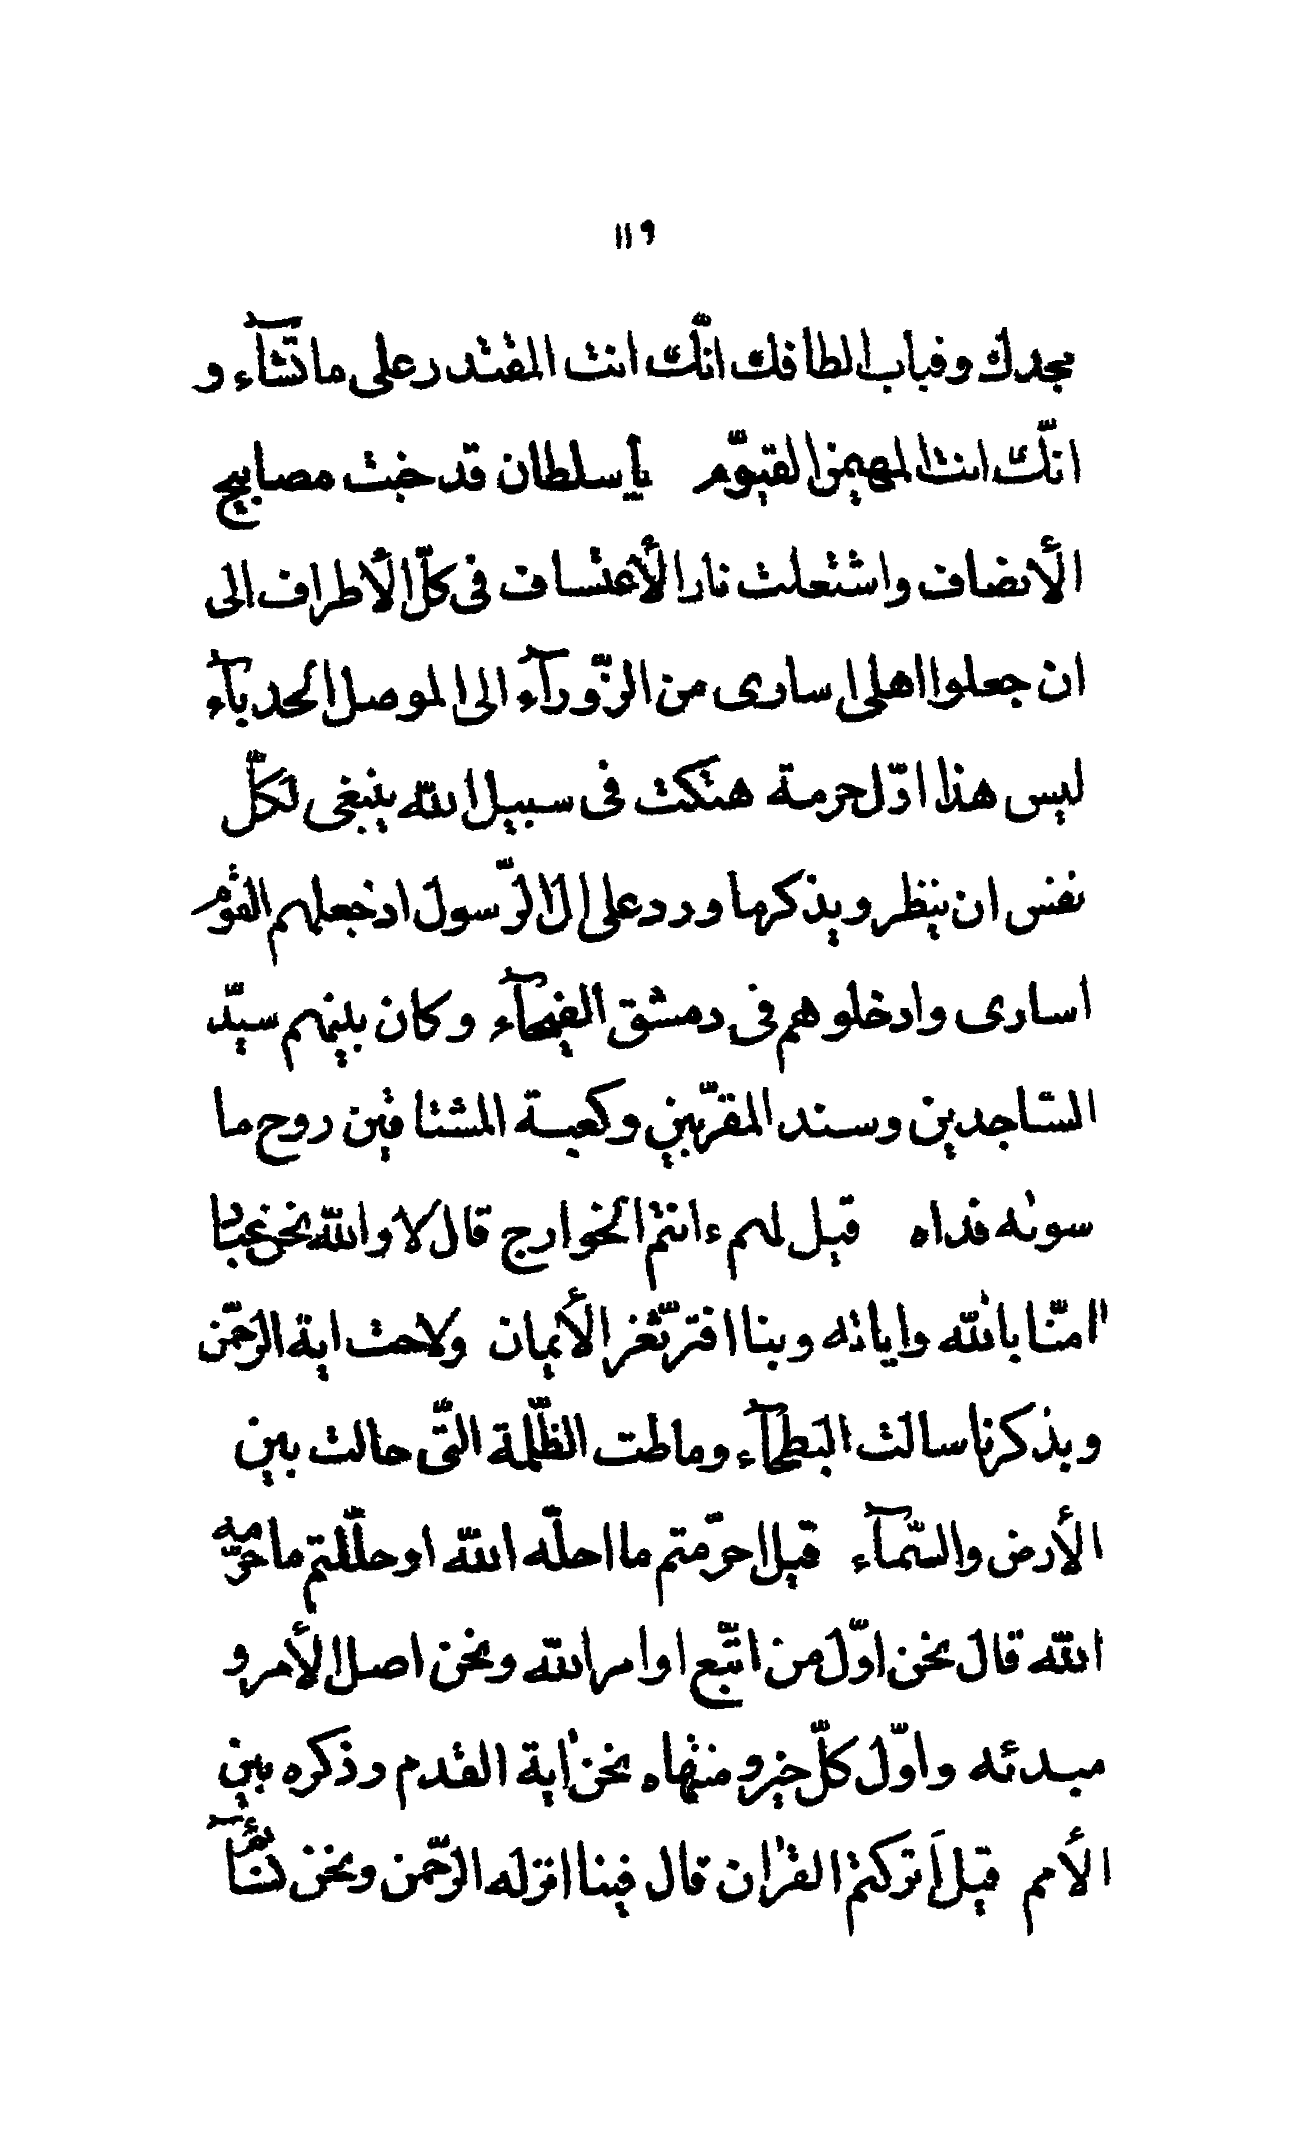 ١١٩
مجدك و قباب الطافك انّك انت المقتدر على ما تشآء و
انّك انت المهيمن القيّوم يا سلطان قد خبت مصابيح
الأنصاف واشتعلت نار الأعتساف فى كلّ الأطراف الى
ان جعلوا اهلى اسارى من الزّورآء الى الموصل الحدبآء
ليس هذا اوّل حرمة هتكت فى سبيل الله ينبغى لكلّ
نفس ان ينظر و يذكر ما ورد على ال الرّسول اذ جعلهم القوم
اسارى وادخلوهم فى دمشق الفيحآء و كان بينهم سيّد
السّاجدين و سند المقرّبين و كعبة المشتاقين روح ما
سوئه فداه قيل لهم ءانتم الخوارج قال لا والله نحن عباد
امنّا بالله واياته وبنا افترّ ثغر الأيمان ولاحت اية الرّحمن
و بذكرنا سالت البطحآء وماطت الظّلمة الّتى حالت بين
الأرض والسّمآء قيل احرّمتم ما احلّه الله او حلّلتم ما حرّمه
الله قال نحن اوّل من اتّبع اوامر الله و نحن اصل الأمر و
مبدئه و اوّل كلّ خير و منتهاه نحن اية القدم و ذكره بين
الأمم قيل أتركتم القران قال فينا انزله الرّحمن و نحن نسائم